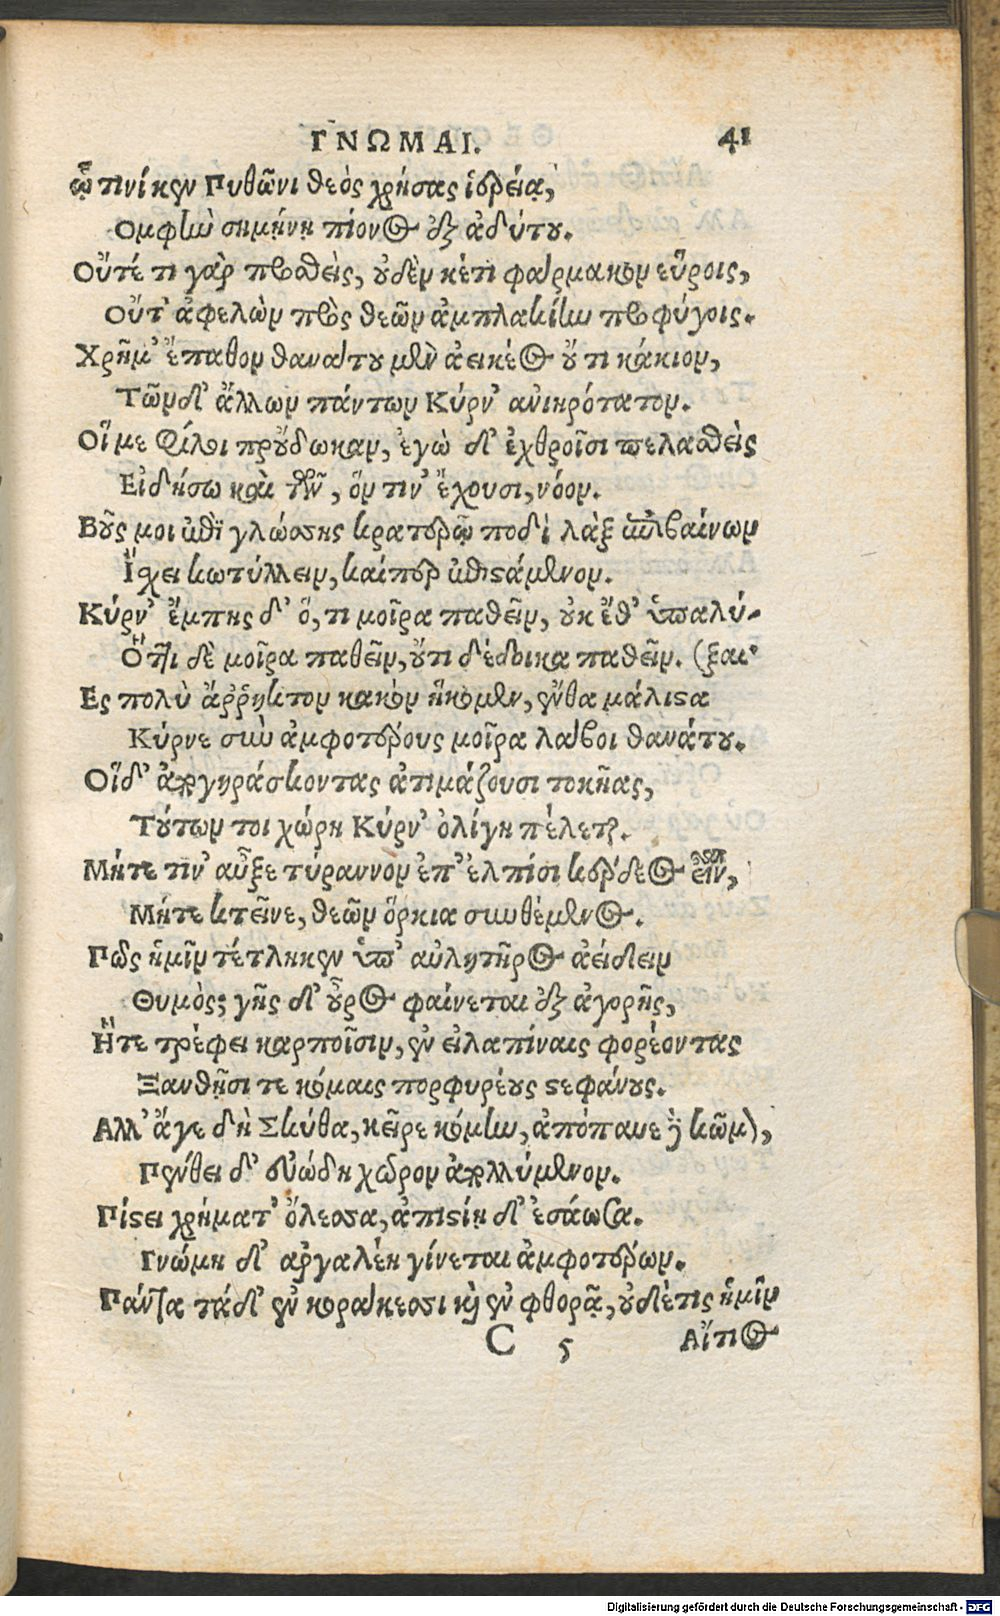 ΓΝΩΜΑΙ. 41
ᾧ τινί κεν Πυθῶνι θεὸς χρήσας ἱερείᾳ,
Ομφὴν σημήνῃ πίονος ἐξ ἀδύτου.
Οὔτέ τι γὰρ προσθεὶς, οὐδὲν κἐτι φάρμακον εὕροις,
Οὔτ' ἀφελὼν πρὸς θεῶν ἀμπλακίην προφύγοις.
Χρῆμ' ἔπαθον θανάτου μὲν ἀεικέος οὔτι κάκιον,
Τῶν δ' ἄλλων πάντων Κύρν' ανιηρότατον.
Οἵ με φίλοι προὔδωκαν, ἐγὼ δ' ἐχθροῖσι πελασθεὶς
Εἰδήσω καὶ τῶν, ὅν τιν' ἔχουσι, νόον.
Βοῦς μοι ἐπὶ γλώσσης κρατερῷ ποδὶ λὰξ ἐπιβαίνων
Ἴσχει κωτύλλειν, καίπερ ἐπιστάμενον.
Κύρν' ἔμπης δ' ὅ, τι μοῖρα παθεῖν, οὐκ ἔσθ' ὑπαλύ-
Ὅττι δὲ μοῖρα παθεῖν, οὔτι δέδοικα παθεῖν. (ξαι·
Ες πολὺ ἄῤῥηκτον κακὸν ἥκομεν, ἔνθα μάλιστα
Κύρνε σὺν ἀμφοτέρους μοῖρα λάβοι θανάτου.
Οἵδ' ἀπογηράσκοντας ἀτιμάζουσι τοκῆας,
Τούτων τοι χώρη Κύρν' ὀλίγη πέλεται.
Μήτε τιν' αὖξε τύραννον ἐπ' ἐλπίσι κέρδεσιν εἴκων,
Μήτε κτεῖνε, θεῶν ὅρκια συνθέμενος.
Πῶς ἡμῖν τέτληκεν ὑπ' αὐλητῆρος ἀείδειν
Θυμὸς; γῆς δ' οὖρος φαίνεται ἐξ ἀγορῆς,
Ἥτε τρέφει καρποῖσιν, ἐν εἰλαπίναις φορέοντας
Ξανθῇσί τε κόμαις πορφυρέους στεφάνους.
Αλλ' ἄγε δὴ Σκύθα, κεῖρε κόμην, ἀπόπαυε δὲ κῶμον,
Πένθει δ' εὐώδη χῶρον ἀπολλύμενον.
Πίστει χρήματ' ὄλεσσα, ἀπιστίῃ δ' ἐσάωσα.
Γνώμη δ' ἀργαλέη γίνεται ἀμφοτέρων.
Πάντα τάδ' ἐν κοράκεσσι καὶ ἐν φθορᾷ, οὐδέτις ἡμῖν
C 5 Αἴτιος
Digitalisierung gefördert durch die Deutsche Forschungsgemeinschaft - DFG